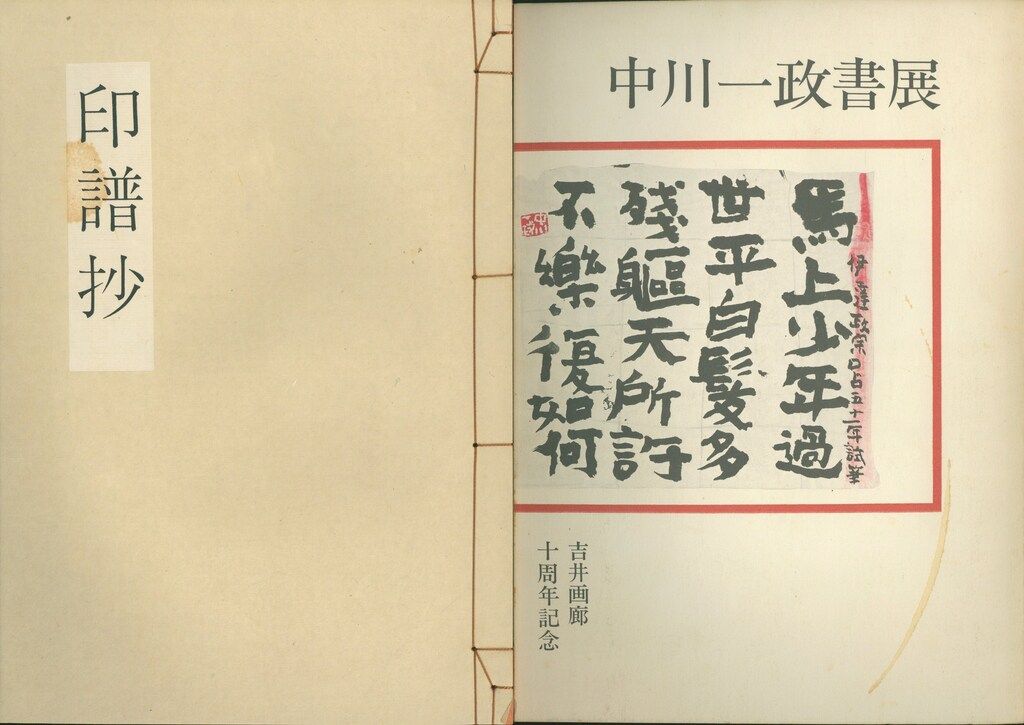 印譜抄
中川一政書展
伊達政宗口占五十一年試筆
馬上少年過
世平白髪多
残軀天所許
不樂復如何
吉井画廊
十周年記念